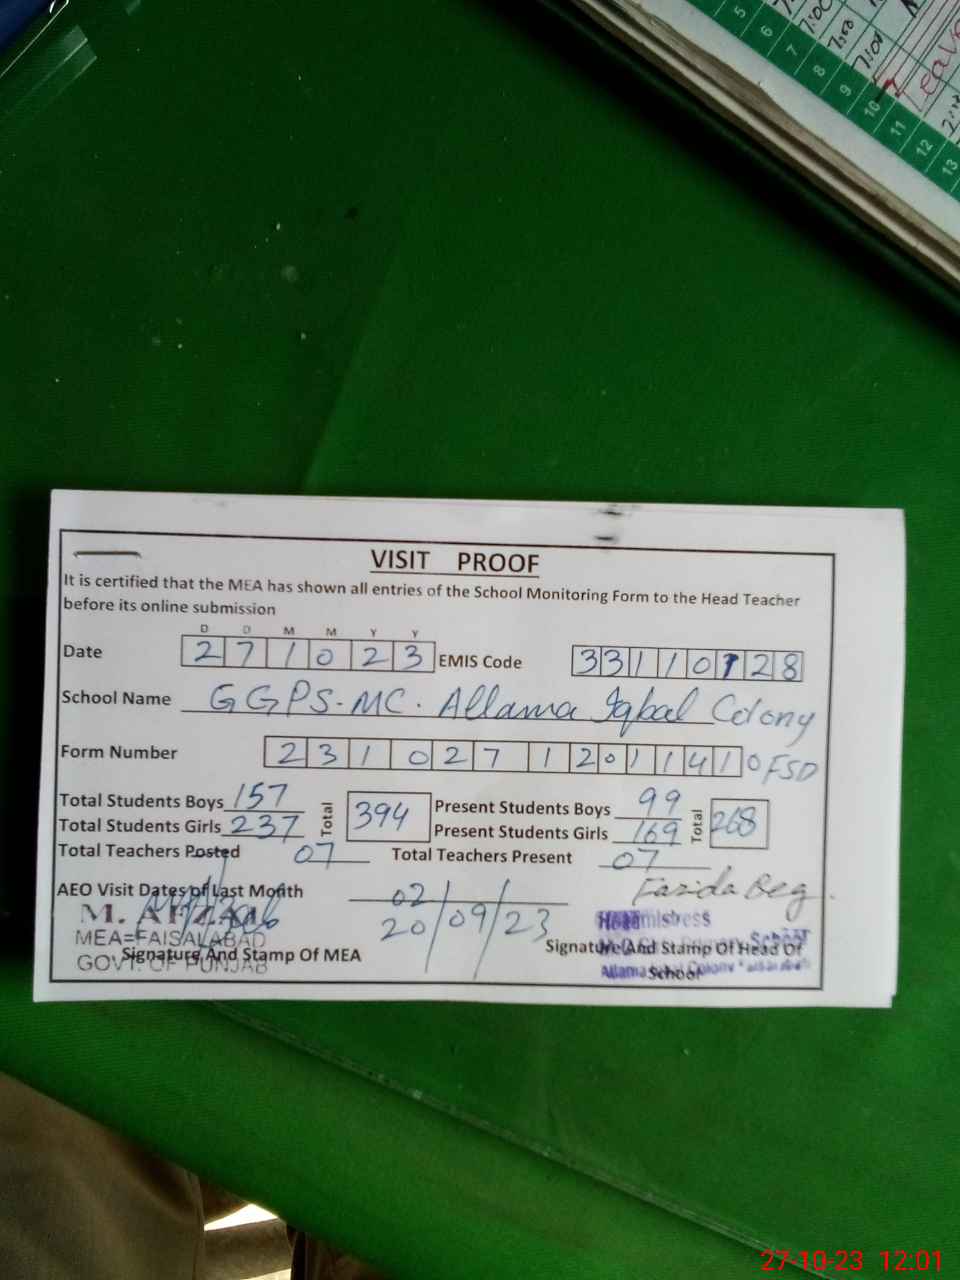 5
6
7
8
9
10
11
12
13
7:00
7:00
7:01
Leave
VISIT PROOF
It is certified that the MEA has shown all entries of the School Monitoring Form to the Head Teacher
before its online submission
D D M M Y Y
Date 2 7 1 0 2 3 EMIS Code 3 3 1 1 0 1 2 8
School Name GGPS-MC. Allama Iqbal Colony
Form Number 2 3 1 0 2 7 1 2 0 1 1 4 1 0 FSD
Total Students Boys 157 Total 394 Present Students Boys 99 Total 268
Total Students Girls 237 Present Students Girls 169
Total Teachers Posted 07 Total Teachers Present 07
AEO Visit Dates of Last Month 02 Farida Beg.
20/09/23
M. AFZAL
MEA=FAISALABAD
GOVT. OF PUNJAB
Signature And Stamp Of MEA
Headmistress
School
Signature And Stamp Of Head Of
School
Allama Iqbal Colony
27-10-23 12:01